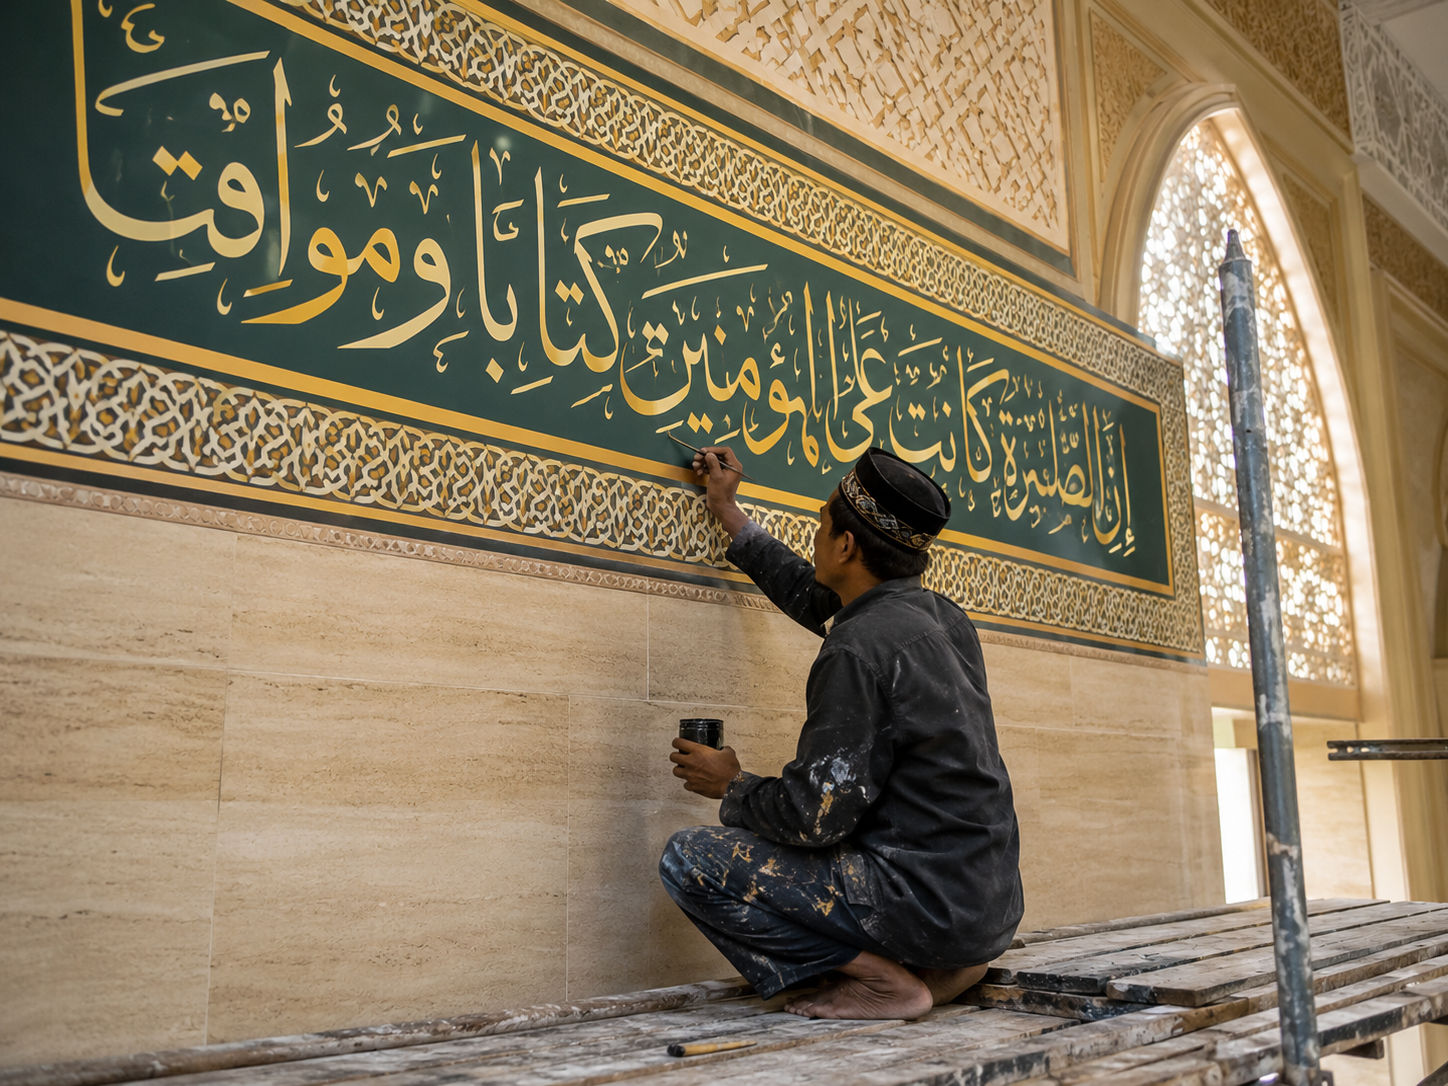 إِنَّ الصَّلٰوةَ كَانَتْ عَلَى الْمُؤْمِنِينَ كِتَابًا وَمُوَاقِتَا